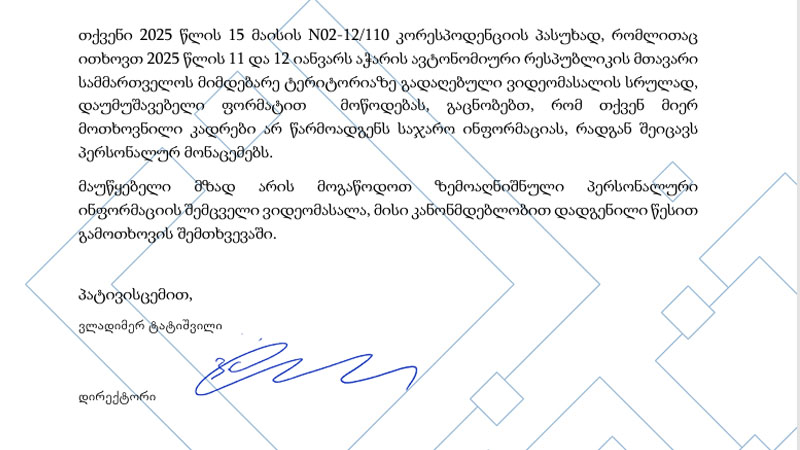 თქვენი 2025 წლის 15 მაისის N02-12/110 კორესპოდენციის პასუხად, რომლითაც
ითხოვთ 2025 წლის 11 და 12 იანვარს აჭარის ავტონომიური რესპუბლიკის მთავარი
სამმართველოს მიმდებარე ტერიტორიაზე გადაღებული ვიდეომასალის სრულად,
დაუმუშავებელი ფორმატით მოწოდებას, გაცნობებთ, რომ თქვენ მიერ
მოთხოვნილი კადრები არ წარმოადგენს საჯარო ინფორმაციას, რადგან შეიცავს
პერსონალურ მონაცემებს.
მაუწყებელი მზად არის მოგაწოდოთ ზემოაღნიშნული პერსონალური
ინფორმაციის შემცველი ვიდეომასალა, მისი კანონმდებლობით დადგენილი წესით
გამოთხოვის შემთხვევაში.
პატივისცემით,
ვლადიმერ ტატიშვილი
დირექტორი